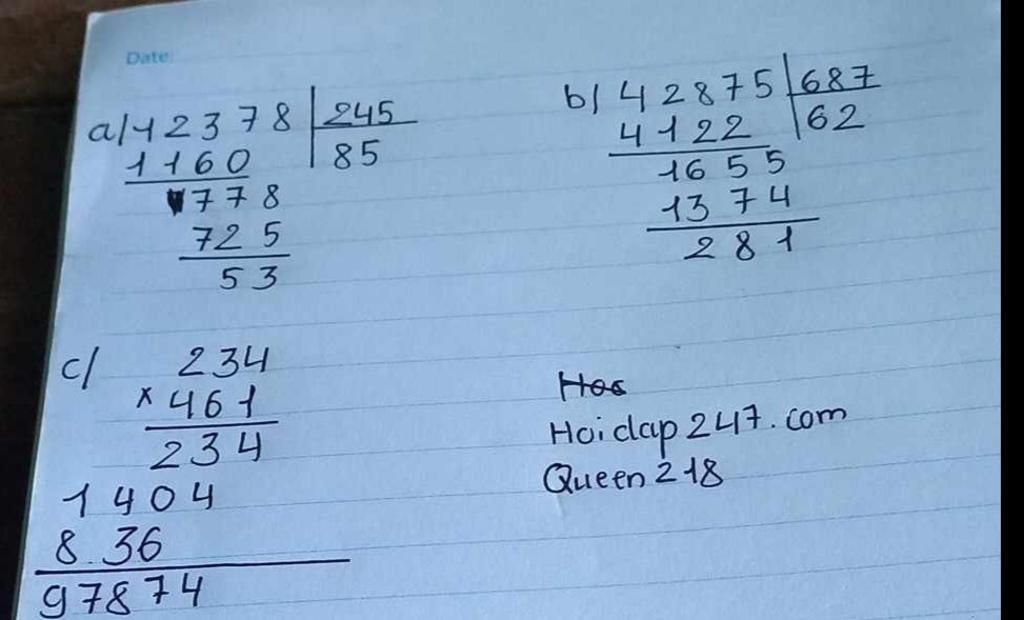 Date:
a/ 12378 | 245
1160 | 85
778
725
53
b/ 42875 | 687
4122 | 62
1655
1374
281
c/ 234
x 461
234
1404
8 36
97874
Hoidap247.com
Queen218